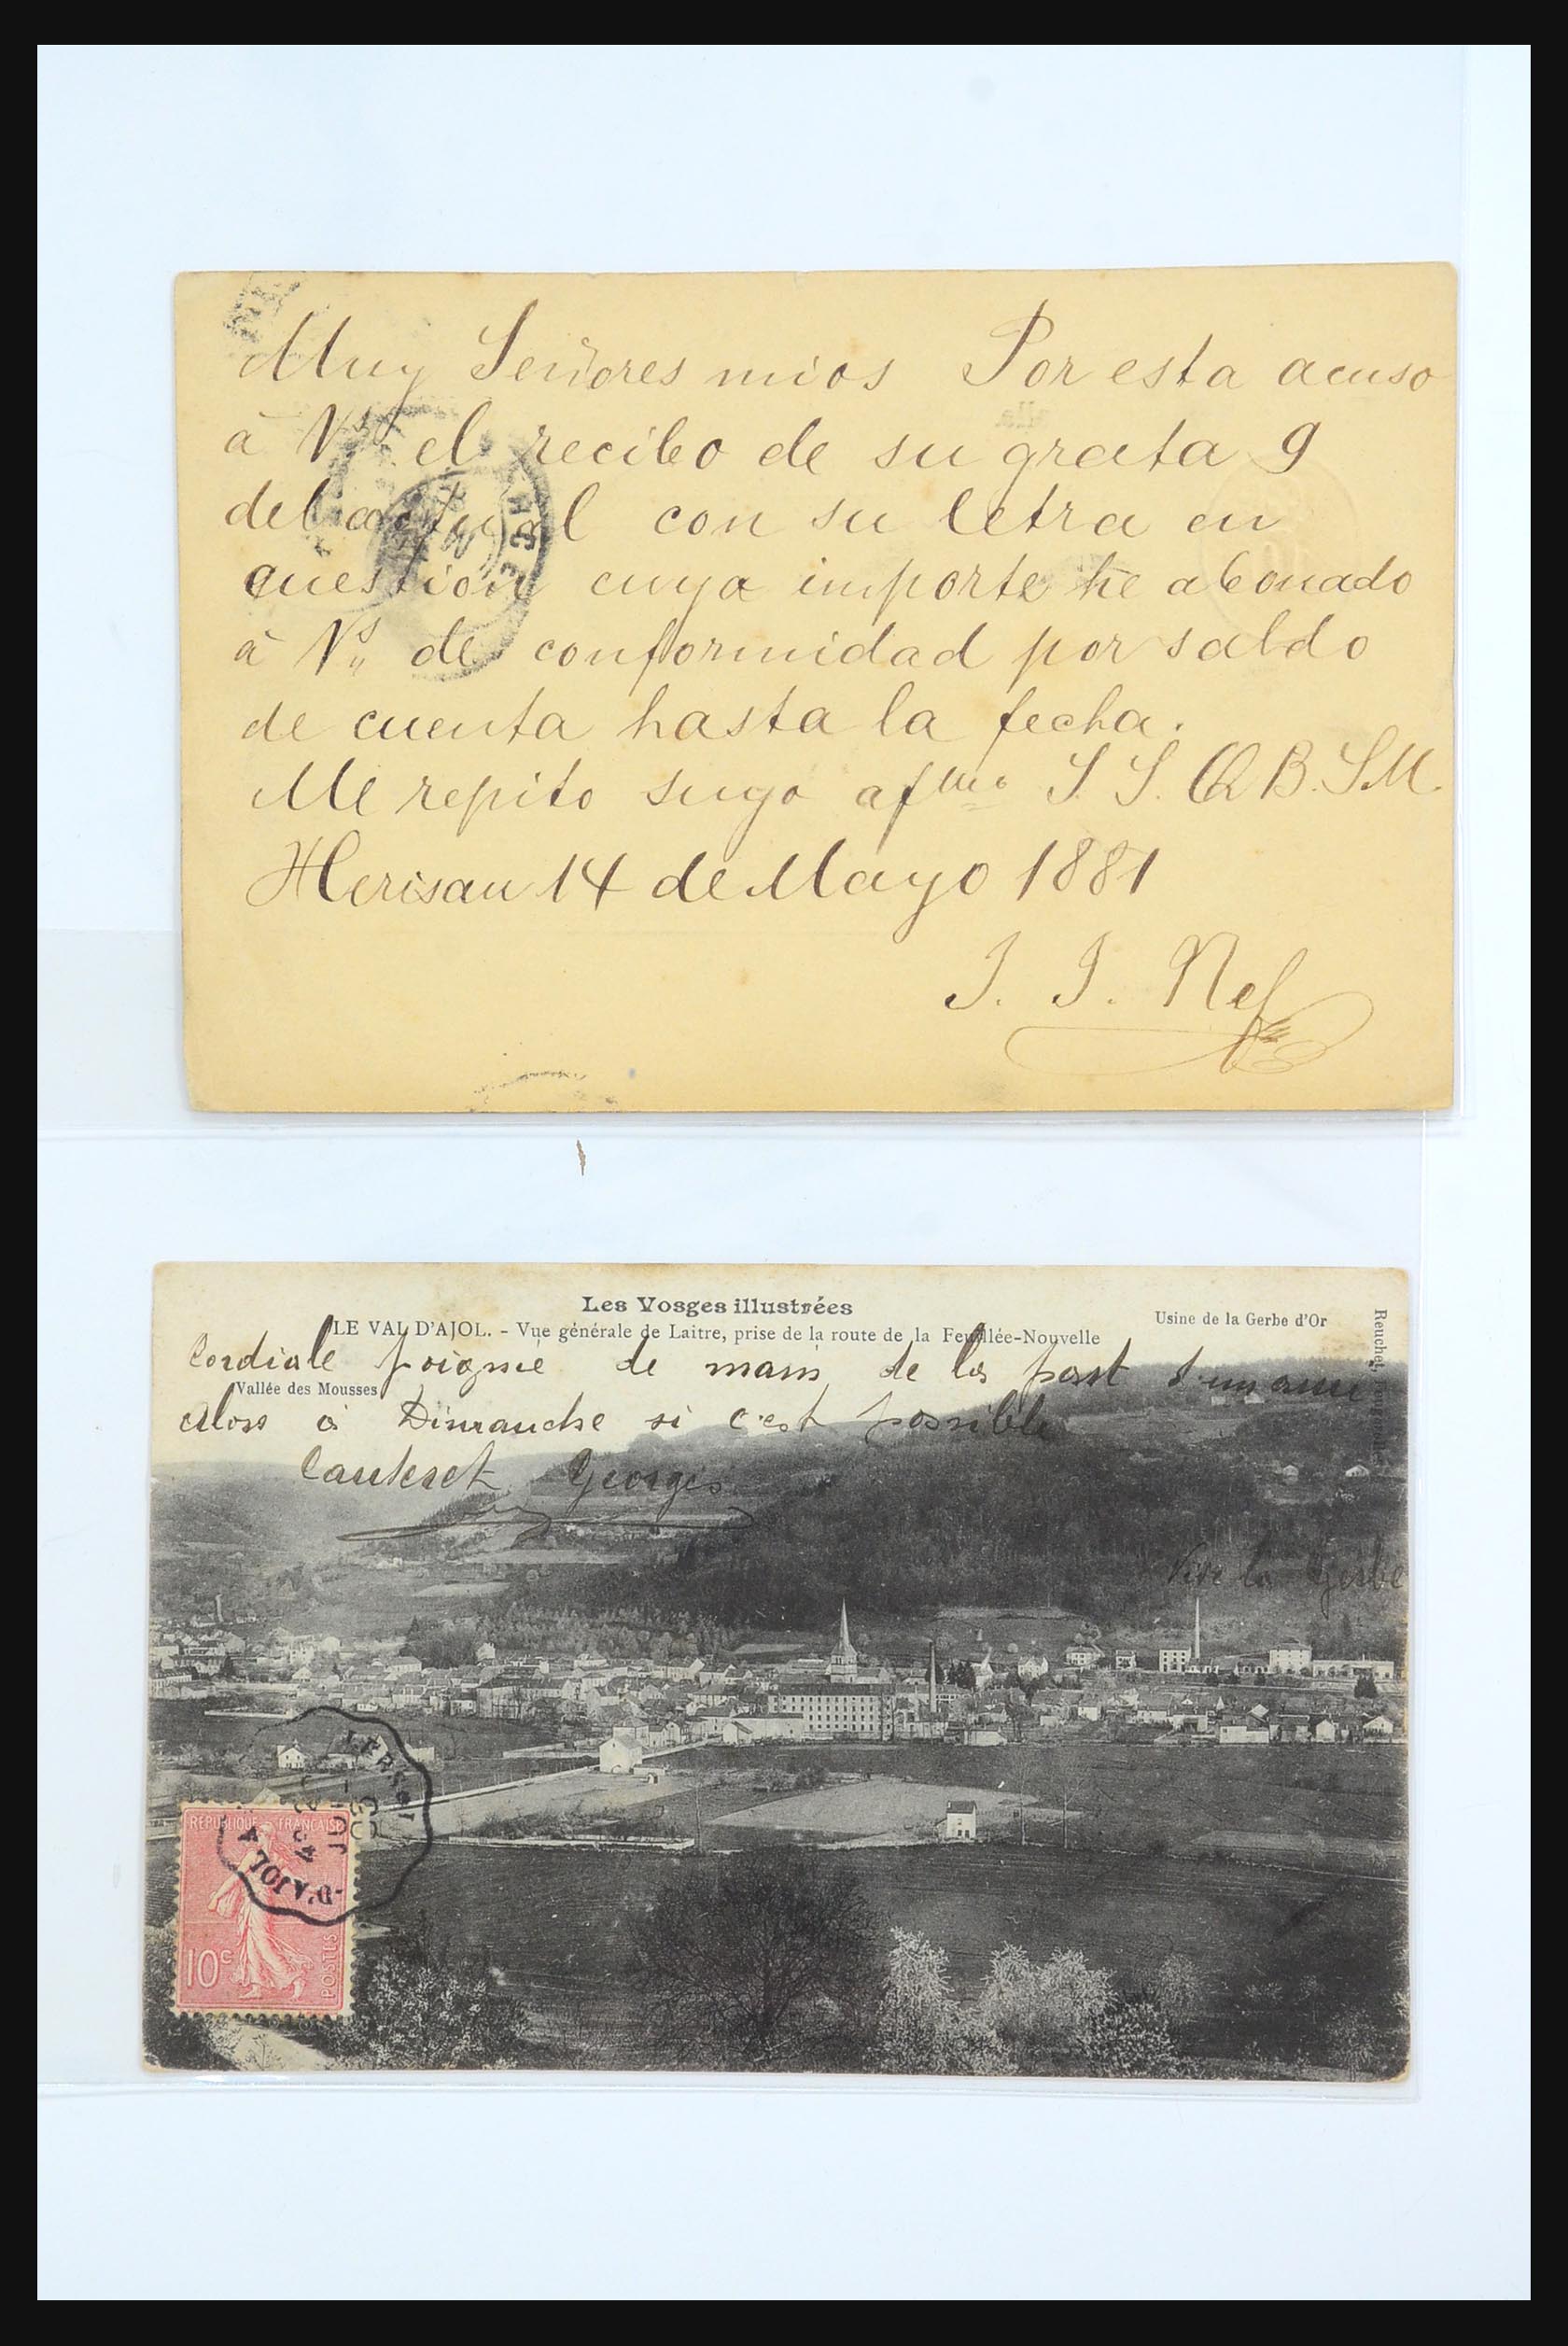 Muy Señores mios Por esta acuso
à Vs el recibo de su grata 9
del actual con su letra en
cuestion cuya importe he abonado
à Vs de conformidad por saldo
de cuenta hasta la fecha.
Me repito suyo afmo S. S. Q B. S M.
Herisau 14 de Mayo 1881
J. J. Nef
Les Vosges illustrées
LE VAL D'AJOL. - Vue générale de Laitre, prise de la route de la Feuillée-Nouvelle
Usine de la Gerbe d'Or
Reuchet,
Cordiale poignée de main de la part d'un ami
Vallée des Mousses
Alors à Dimanche si c'est possible
Georges
Vive la Gerbe
REPUBLIQUE FRANÇAISE
D'AJOL A
10c
POSTES